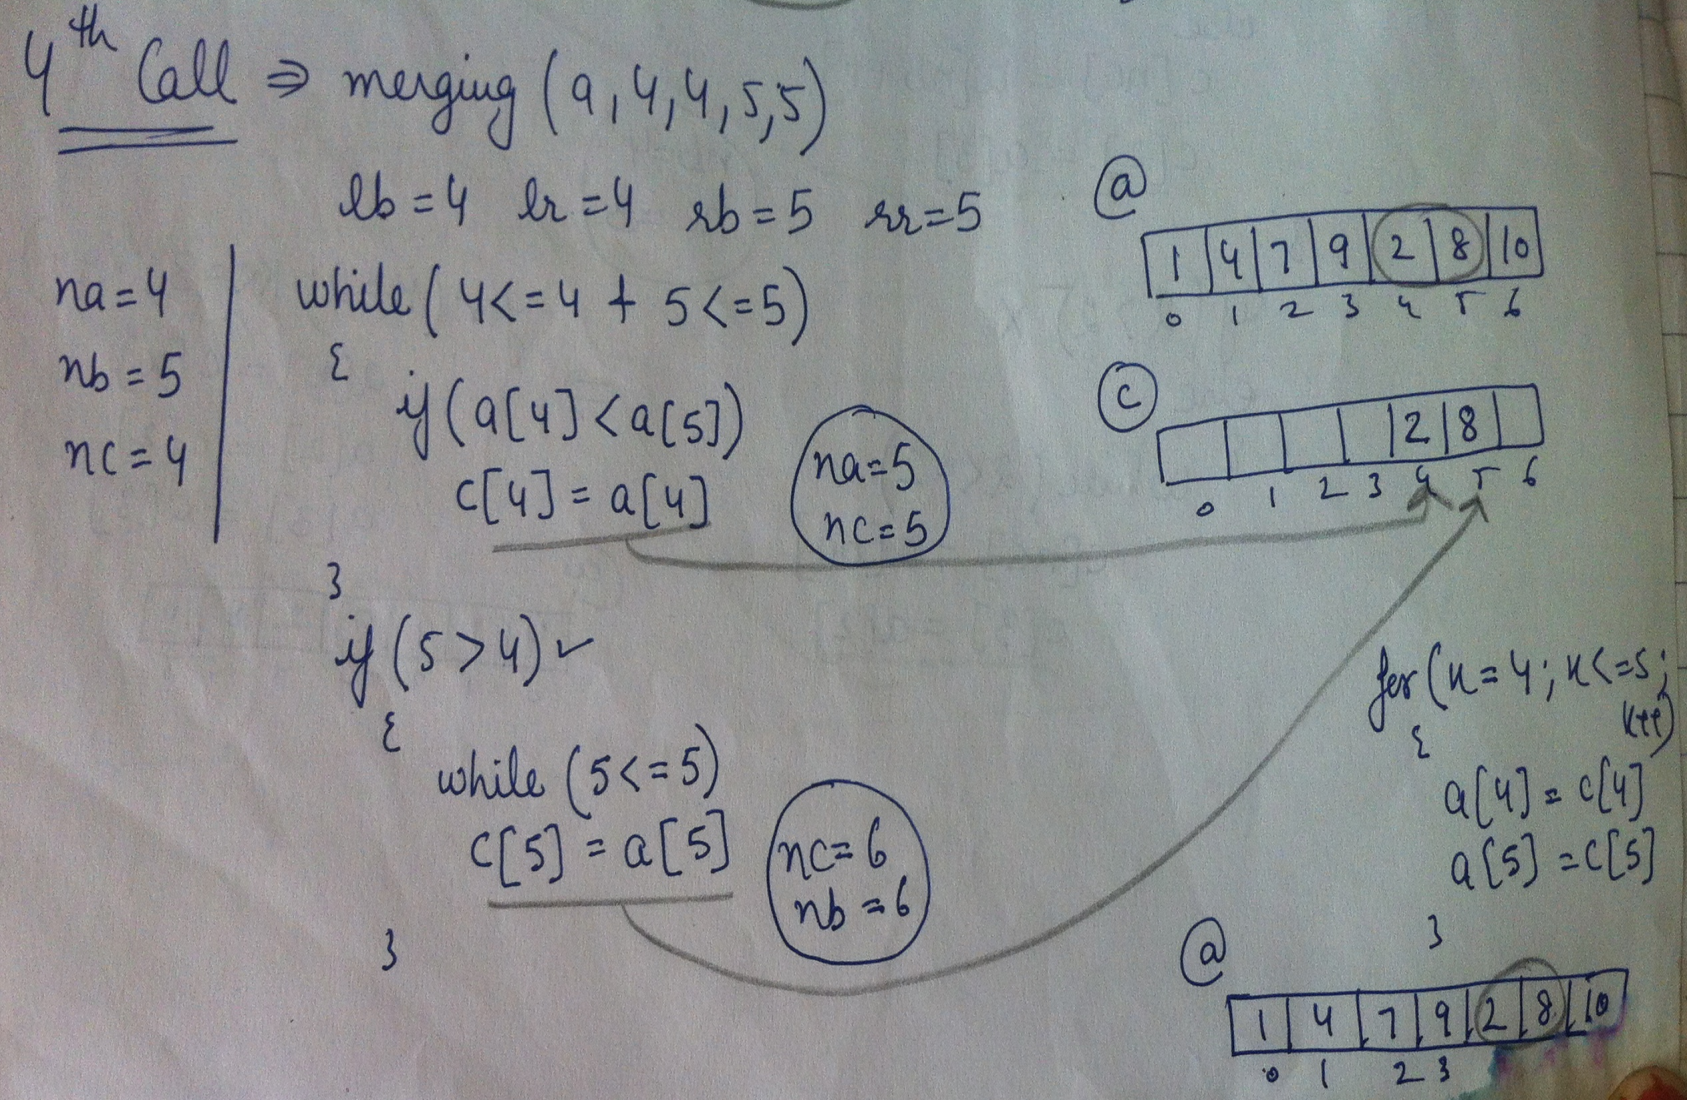 4th Call ⇒ merging (a, 4, 4, 5, 5)
lb = 4 lr = 4 rb = 5 rr = 5
na = 4
nb = 5
nc = 4
while ( 4 <= 4 + 5 <= 5)
{
if (a[4] < a[5])
c[4] = a[4]
na = 5
nc = 5
}
if (5 > 4) ✓
{
while (5 <= 5)
c[5] = a[5]
nc = 6
nb = 6
}
a
1 4 7 9 2 8 10
0 1 2 3 4 5 6
c
2 8
0 1 2 3 4 5 6
for (k = 4; k <= 5;
k++)
{
a[4] = c[4]
a[5] = c[5]
}
a
1 4 7 9 2 8 10
0 1 2 3